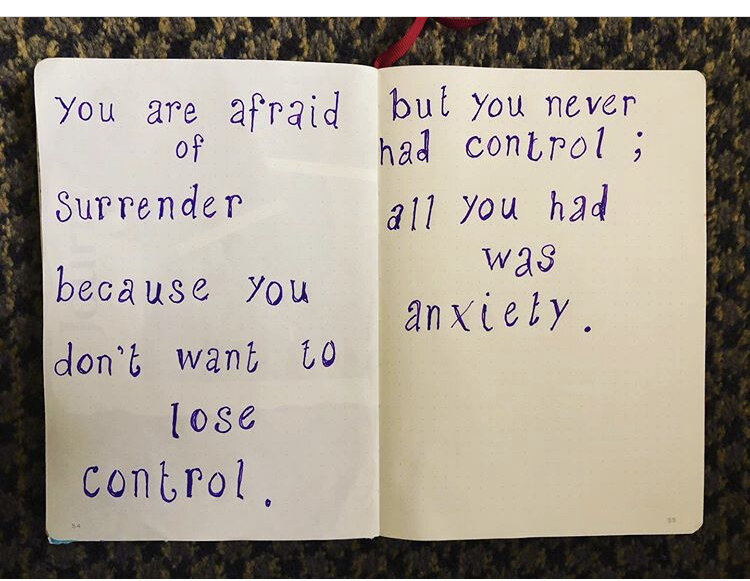 you are afraid
of
surrender
because you
don't want to
lose
control.
54
but you never
had control ;
all you had
was
anxiety.
55